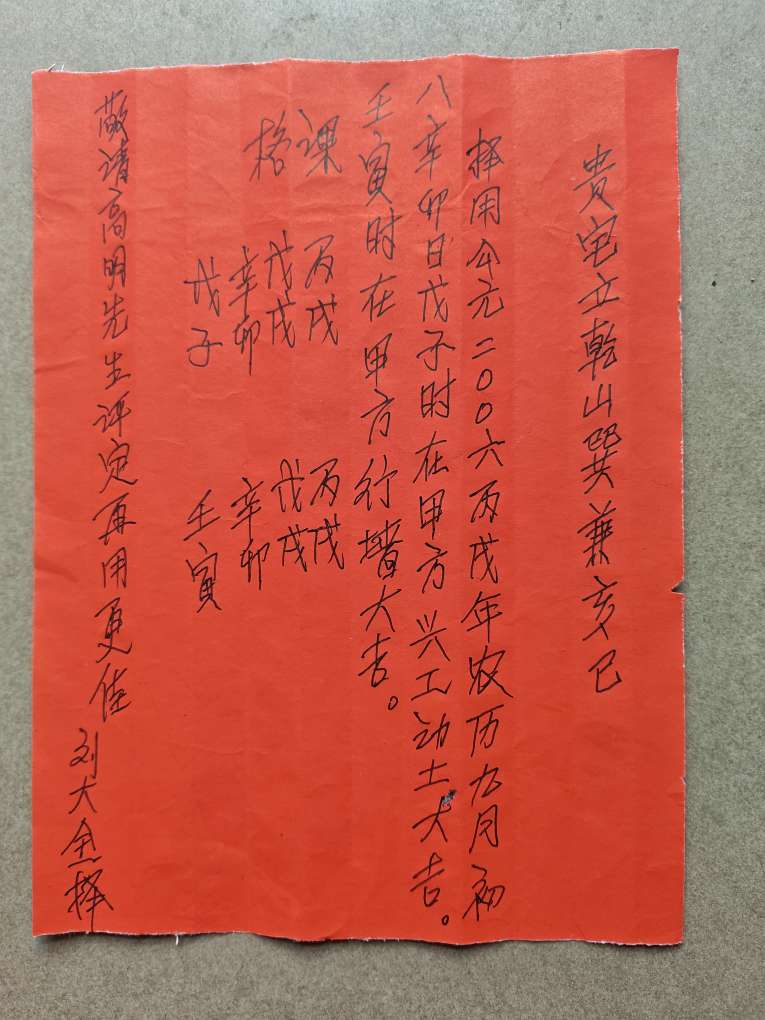 贵宅立乾山巽兼亥巳
择用公元二00六丙戌年农历九月初
八辛卯日戊子时在甲方兴工动土大吉。
壬寅时在甲方行墙大吉。
课 丙戌 丙戌
格 戊戌 戊戌
辛卯 辛卯
戊子 壬寅
敬请高明先生评定再用更佳
刘大 择